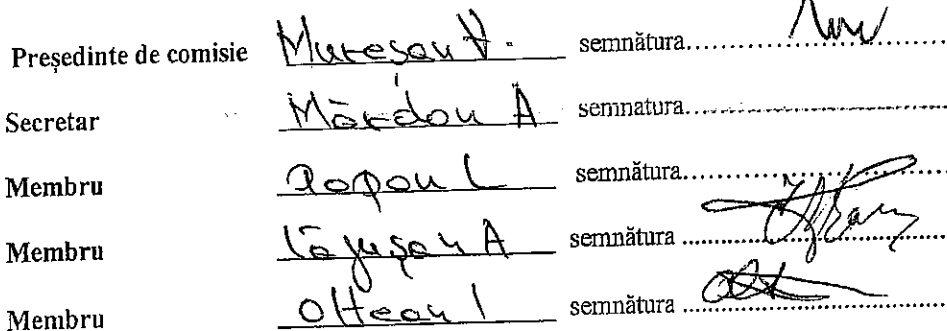 Președinte de comisie Mureșan V. semnătura....................
Secretar Mărdan A semnatura....................
Membru Popan L semnătura....................
Membru semnătura ....................
Membru Oltean I semnătura ....................